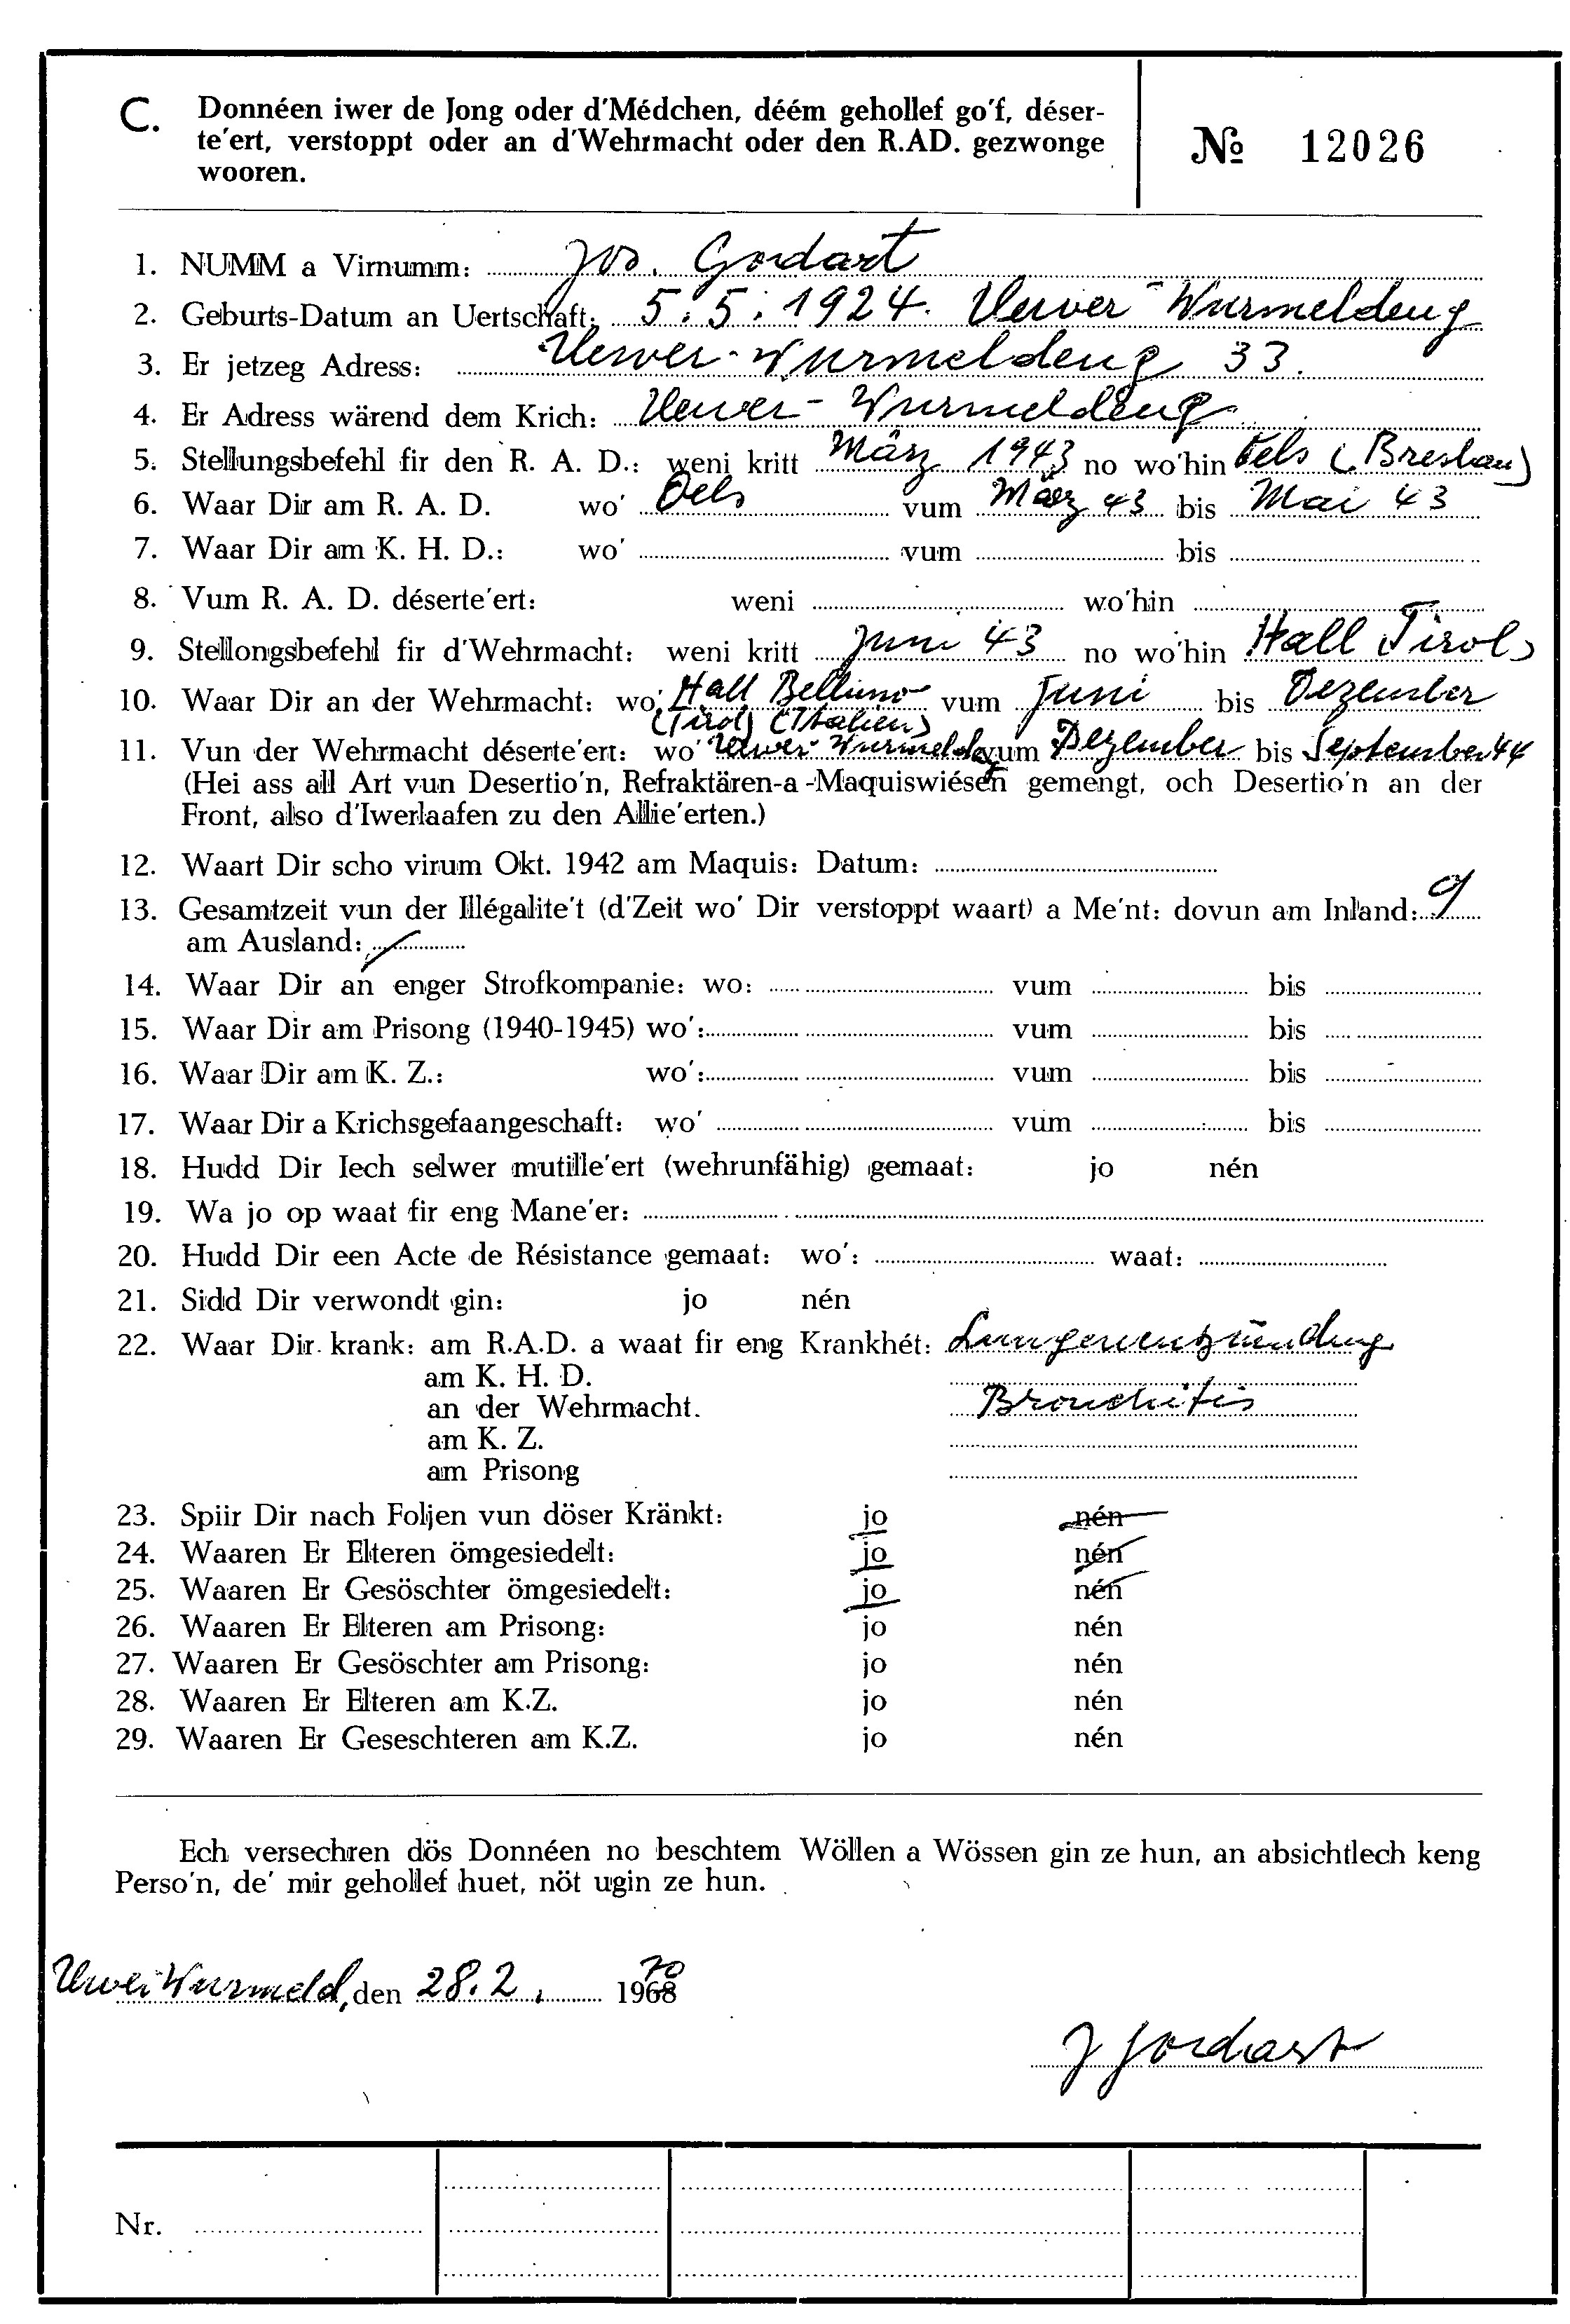 C. Donnéen iwer de Jong oder d'Médchen, déém gehollef go'f, déser-
te'ert, verstoppt oder an d'Wehrmacht oder den R.AD. gezwonge
wooren.
№ 12026
1. NUMM a Virnumm: Jos. Gordart
2. Geburts-Datum an Uertschaft: 5.5.1924. Uewer-Wurmeldeng
3. Er jetzeg Adress: Uewer-Wurmeldeng 33.
4. Er Adress wärend dem Krich: Uewer-Wurmeldeng
5. Stellungsbefehl fir den R. A. D.: weni kritt März 1943 no wo'hin Oels (Breslau)
6. Waar Dir am R. A. D. wo' Oels vum März 43 bis Mai 43
7. Waar Dir am K. H. D.: wo' vum bis
8. Vum R. A. D. déserte'ert: weni wo'hin
9. Stellongsbefehl fir d'Wehrmacht: weni kritt Juni 43 no wo'hin Hall (Tirol)
10. Waar Dir an der Wehrmacht: wo' Hall Belluno vum Juni bis Dezember
(Tirol) (Italien)
11. Vun der Wehrmacht déserte'ert: wo' Uewer-Wurmeldeng vum Dezember bis September 44
(Hei ass all Art vun Desertio'n, Refraktären-a -Maquiswiésen gemengt, och Desertio'n an der
Front, also d'Iwerlaafen zu den Allie'erten.)
12. Waart Dir scho virum Okt. 1942 am Maquis: Datum:
13. Gesamtzeit vun der Illégalite't (d'Zeit wo' Dir verstoppt waart) a Me'nt: dovun am Inland: 9
am Ausland: /
14. Waar Dir an enger Strofkompanie: wo: vum bis
15. Waar Dir am Prisong (1940-1945) wo': vum bis
16. Waar Dir am K. Z.: wo': vum bis
17. Waar Dir a Krichsgefaangeschaft: wo' vum bis
18. Hudd Dir Iech selwer mutille'ert (wehrunfähig) gemaat: jo nén
19. Wa jo op waat fir eng Mane'er:
20. Hudd Dir een Acte de Résistance gemaat: wo': waat:
21. Sidd Dir verwondt gin: jo nén
22. Waar Dir krank: am R.A.D. a waat fir eng Krankhét: Lungenentzündung
am K. H. D.
an der Wehrmacht. Bronchitis
am K. Z.
am Prisong
23. Spiir Dir nach Foljen vun döser Kränkt: jo nén
24. Waaren Er Elteren ömgesiedelt: jo nén
25. Waaren Er Gesöschter ömgesiedelt: jo nén
26. Waaren Er Elteren am Prisong: jo nén
27. Waaren Er Gesöschter am Prisong: jo nén
28. Waaren Er Elteren am K.Z. jo nén
29. Waaren Er Geseschteren am K.Z. jo nén
Ech versechren dös Donnéen no beschtem Wöllen a Wössen gin ze hun, an absichtlech keng
Perso'n, de' mir gehollef huet, nöt ugin ze hun.
70
Uwer Wurmeld, den 28.2. 1968
J Gordart
Nr.